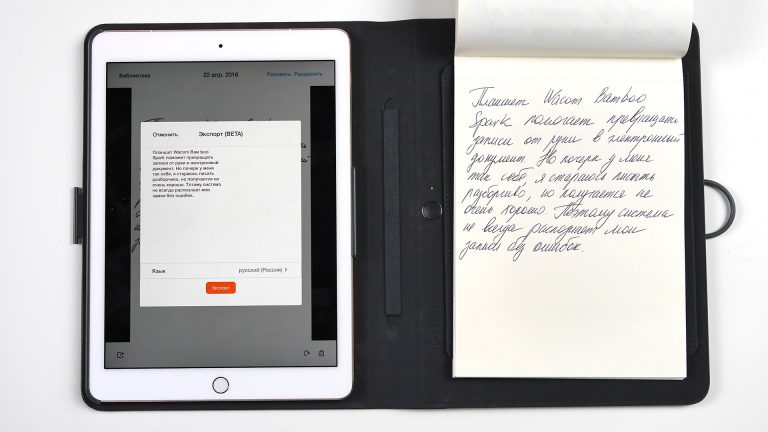 Библиотека 22 апр. 2016 Рисовать Разделить
Отменить Экспорт (BETA)
Планшет Wacom Bam boo
Spark поможет превращать
записи от руки в електронный
документ. Но почерк у меня
так себе, я стараюсь писать
разборчиво, но получается не
очень хорошо. Тятому система
не всегда распознает вам
записи без ошибок.
Язык русский (Россия) >
Экспорт
Планшет Wacom Bamboo
Spark помогает превращать
записи от руки в электронный
документ. Но почерк у меня
так себе, я стараюсь писать
разборчиво, но получается не
очень хорошо. Поэтому система
не всегда распознает мои
записи без ошибок.